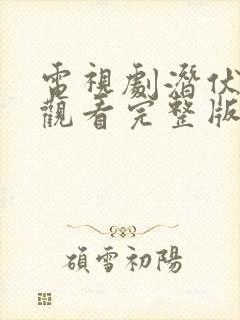 電視劇潛伏
觀看完整版
碩雪初陽